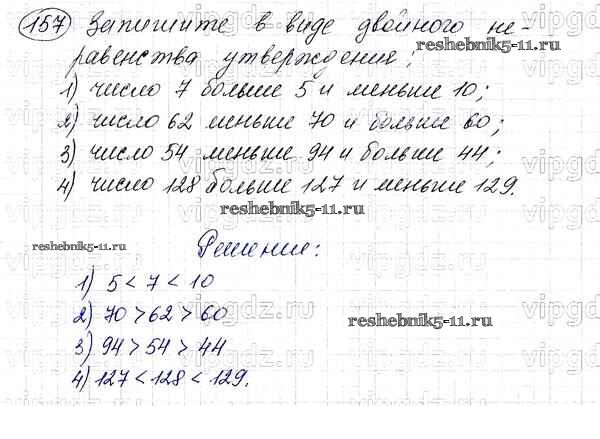 157 Запишите в виде двойного не-
reshebnik5-11.ru
равенства утверждения:
1) число 7 больше 5 и меньше 10;
2) число 62 меньше 70 и больше 60;
3) число 54 меньше 94 и больше 44;
4) число 128 больше 127 и меньше 129.
reshebnik5-11.ru
reshebnik5-11.ru
Решение:
1) 5 < 7 < 10
2) 70 > 62 > 60
reshebnik5-11.ru
3) 94 > 54 > 44
4) 127 < 128 < 129.